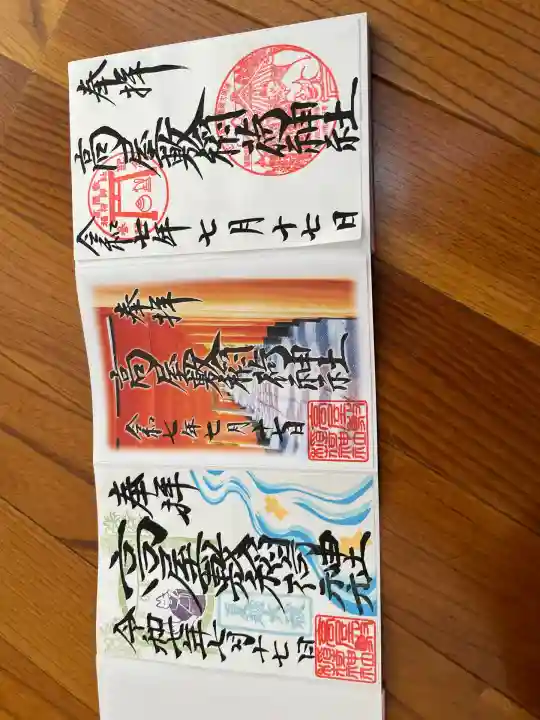 奉拝
高屋敷稲荷神社
令和七年 七月十七日
奉拝
高屋敷稲荷神社
令和七年七月十七日
奉拝
高屋敷稲荷神社
令和七年七月十七日